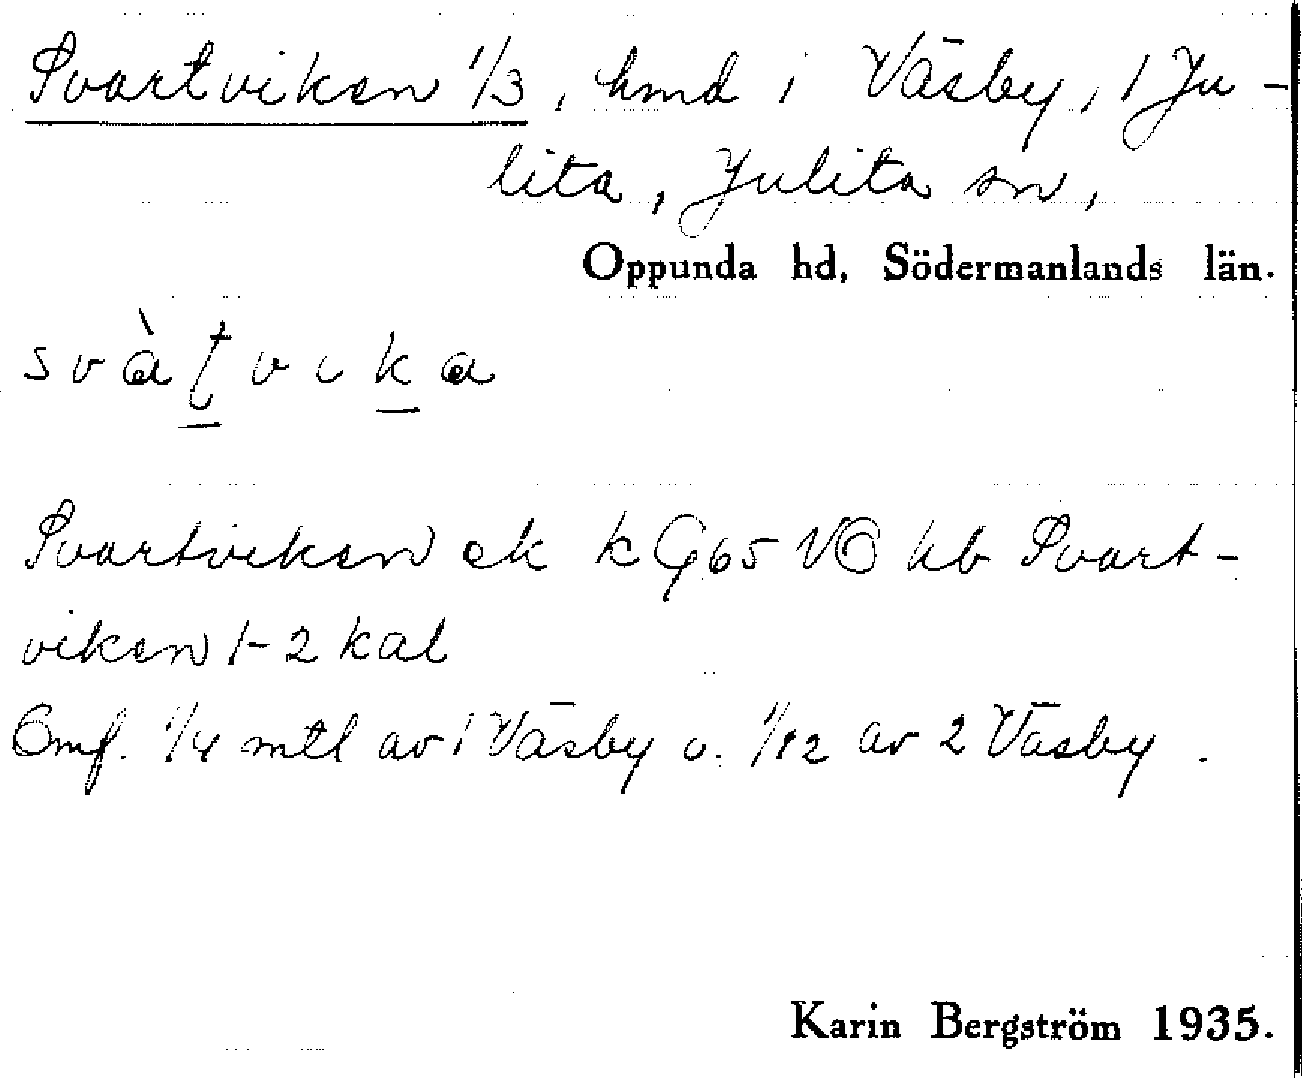 Svartviken 1/3, hmd i Väsby, 1 Ju-
lita, Julita sn,
Oppunda hd, Södermanlands län.
svàtvika
Svartviken ek k G65 VÖ hb Svart-
viken 1-2 kal
Omf. 1/4 mtl av 1 Väsby o. 1/12 av 2 Väsby.
Karin Bergström 1935.